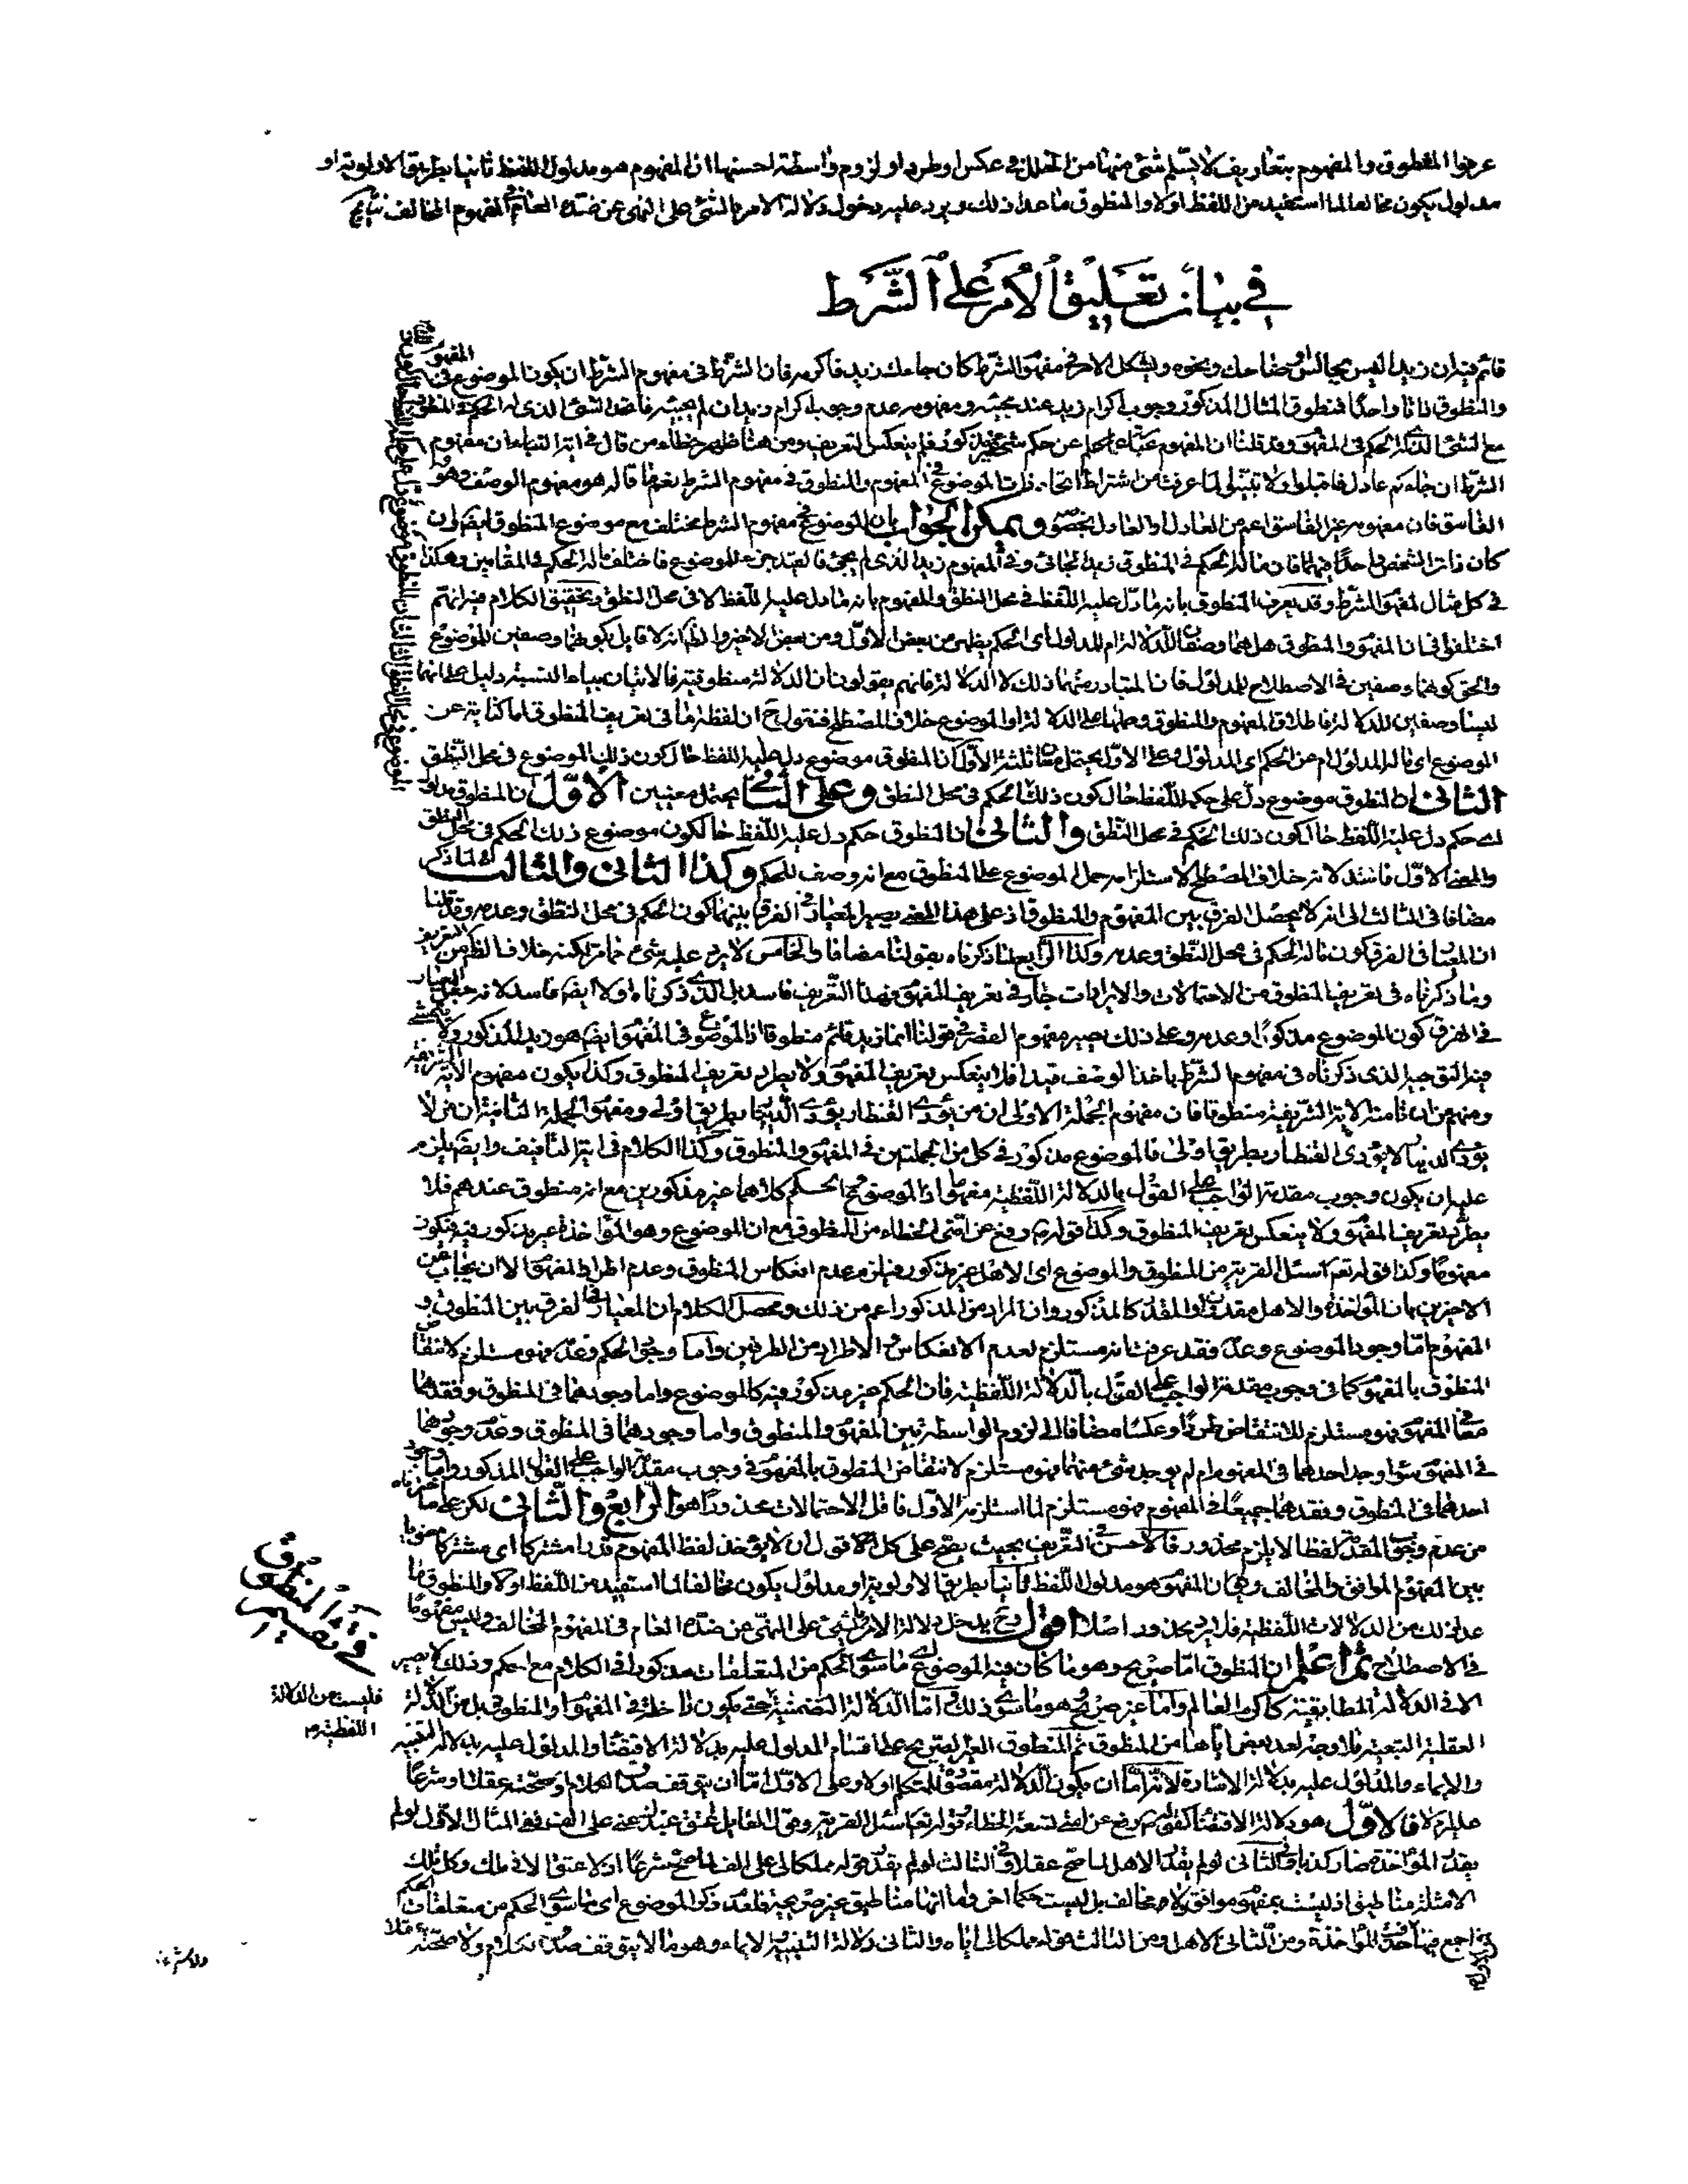 عرفوا المنطوق والمفهوم بتعاريف لا يسلم شئ منها من الخلل في عكس او طرد او لزوم واسطة احسنها ان المفهوم هو مدلول اللفظ ثانيا بطريق الاولوية او
مدلول يكون مخالفا لما استفيد من اللفظ اولا والمنطوق ما عدا ذلك ويرد عليه دخول دلالة الامر بالشئ على النهى عن ضده العام في المفهوم المخالف
في بيان تعليق الامر على الشرط
قائم فيه ان زيدا ليس بجالس ونحوه ويشكل الامر في مفهوم الشرط كان جاءك زيد فاكرمه فان الشرط في مفهوم الشرط ان يكون الموضوع في المفهوم
والمنطوق ذاتا واحدا فمنطوق المثال المذكور وجوب اكرام زيد عند مجيئه ومفهومه عدم وجوب اكرام زيد ان لم يجئ فاتحد الشئ الذى له الحكم في المنطوق
مع الشئ الذى له الحكم في المفهوم وقد قلنا ان المفهوم عن حكم شئ غير مذكور فلم ينعكس التعريف ومن هنا ظهر خطاء من قال في اية النباء ان مفهوم
الشرط ان جاءكم عادل فاقبلوا ولا تبينوا لما عرفت من اشتراط اتحاد ذات الموضوع في المفهوم والمنطوق في مفهوم الشرط نعم ما قاله هو مفهوم الوصف وهو
الفاسق فان مفهومه غير الفاسق اعم من العادل او العادل بخصوصه ويمكن الجواب بان الموضوع في مفهوم الشرط مختلف مع موضوع المنطوق ايضا وان
كان ذات الشخص واحدا فيهما فان ما له الحكم في المنطوق زيد الجائى وفي المفهوم زيد الذى لم يجئ فالقيد جزء للموضوع فاختلف ما له الحكم في المقامين وهكذا
في كل مثال لمفهوم الشرط وقد يعرف المنطوق بانه ما دل عليه اللفظ في محل النطق والمفهوم بانه ما دل عليه اللفظ لا في محل النطق وتحقيق الكلام فيه انهم
اختلفوا في ان المفهوم والمنطوق هل هما وصفان للدلالة ام للمدلول اى الحكم يظهر من بعض الاول ومن بعض الاخير والظاهر انه لا قايل بكونهما وصفين للموضوع
والحق كونهما وصفين في الاصطلاح للمدلول فان المتبادر منهما ذلك لا الدلالة فانهم يقولون ان الدلالة منطوقية فالاتيان بياء النسبة دليل على انهما
ليسا وصفين للدلالة فاطلاق المفهوم والمنطوق وحملهما على الدلالة او الموضوع خلاف المصطلح فنقول ح ان لفظة ما في تعريف المنطوق اما كناية عن
الموضوع اى ما له المدلول ام عن الحكم اى المدلول وعلى الاول يحتمل معان ثلثة الاول ان المنطوق موضوع دل عليه اللفظ حالكون ذلك الموضوع في محل النطق
الثانى ان المنطوق موضوع دل على حكمه اللفظ حالكون ذلك الحكم في محل النطق وعلى الثانى يحتمل معنيين الاول ان المنطوق مدلول
اى حكم دل عليه اللفظ حالكون ذلك الحكم في محل النطق والثانى ان المنطوق حكم دل عليه اللفظ حالكون موضوع ذلك الحكم في محل النطق
والمعنى الاول فاسد لانه خلاف المصطلح لاستلزامه حمل الموضوع على المنطوق مع انه وصف للحكم وكذا الثانى والثالث لما ذكر
مضافا في الثالث الى انه لا يحصل الفرق بين المفهوم والمنطوق اذ على هذا المعنى يصير المعيار في الفرق بينهما كون الحكم في محل النطق وعدمه وقد قلنا
ان المعيار في الفرق كون ما له الحكم في محل النطق وعدمه وكذا الرابع لما ذكرناه بقولنا مضافا والخامس لا يرد عليه شئ مما مر لكنه خلاف الظاهر من التعريف
وما ذكرناه في تعريف المنطوق من الاحتمالات والايرادات جار في تعريف المفهوم فهذا التعريف فاسد بل الذى ذكرناه اولا ايضا فاسد لانه جعل المعيار
في الفرق كون الموضوع مذكورا وعدمه وعلى ذلك يصير مفهوم الحصر في قولنا انما زيد قائم منطوقا اذ الموضوع في المفهوم ايضا هو زيد المذكور ولا
فيه التوجيه الذى ذكرناه في مفهوم الشرط باخذ الوصف قيدا فلا ينعكس تعريف المفهوم ولا يطرد تعريف المنطوق وكذا يكون مفهوم الاية الشريفة
ومنهم من ان تامنه الاية الشريفة منطوقا فان مفهوم الجملة الاولى ان من يؤدى القنطار يؤدى الدينار بطريق اولى ومفهوم الجملة الثانية ان من لا
يؤدى الدينار لا يؤدى القنطار بطريق اولى فالموضوع مذكور في كل من الجملتين في المفهوم والمنطوق وكذا الكلام في اية التافيف وايضا يلزم
عليه ان يكون وجوب مقدمة الواجب على القول بالدلالة اللفظية مفهوما اذ الموضوع والحكم كلاهما غير مذكورين مع انه منطوق عندهم فلا
يطرد تعريف المفهوم ولا ينعكس تعريف المنطوق وكذا قوله ص رفع عن امتى الخطاء من المنطوق مع ان الموضوع وهو المؤاخذة غير مذكور فيه فيكون
مفهوما وكذا قوله تع اسئل القرية من المنطوق والموضوع اى الاهل غير مذكور فيلزم عدم انعكاس المنطوق وعدم اطراد المفهوم الا ان يجاب عن
الاخيرين بان المؤاخذة والاهل مقدران والمقدر كالمذكور وان المراد من المذكور اعم من ذلك ومحصل الكلام ان المعيار في الفرق بين المنطوق و
المفهوم اما وجود الموضوع وعدمه فقد عرفت انه مستلزم لعدم الانعكاس والاطراد من الطرفين واما وجود الحكم وعدمه فهو مستلزم لانتقاض
المنطوق بالمفهوم كما في وجوب مقدمة الواجب على القول بالدلالة اللفظية فان الحكم غير مذكور فيه كالموضوع واما وجودهما في المنطوق وفقدهما
معا في المفهوم فهو مستلزم للانتقاض طردا وعكسا مضافا الى لزوم الواسطة بين المفهوم والمنطوق واما وجودهما في المنطوق وعدم وجودهما
في المفهوم سواء وجد احدهما في المفهوم ام لم يوجد شئ منهما فهو مستلزم لانتقاض المنطوق بالمفهوم في وجوب مقدمة الواجب على القول المذكور واما وجود
احدهما في المنطوق وفقدهما جميعا في المفهوم فهو مستلزم لما استلزمه الاول فاقل الاحتمالات محذورا هو الرابع والثانى لكن على ما
من عدم وجود المقدر لفظا لا يلزم محذور فالاحسن في التعريف بحيث يصح على كل الاقوال ان لا يؤخذ لفظ المفهوم قدرا مشتركا اى مشتركا معنويا
بين المفهوم الموافق والمخالف وهو ان المفهوم هو مدلول اللفظ ثانيا بطريق الاولوية او مدلول يكون مخالفا لما استفيد من اللفظ اولا والمنطوق ما
عدا ذلك من الدلالات اللفظية فلا يرد محذور اصلا اقول وح يدخل دلالة الامر بالشئ على النهى عن ضده العام في المفهوم المخالف وليس مفهوما
في الاصطلاح ثم اعلم ان المنطوق اما صريح وهو ما كان فيه الموضوع اى ما سوى الحكم من المتعلقات مذكورا في الكلام مع الحكم وذلك لا يصير
الا في الدلالة المطابقية كاكرم العالم واما غير صريح وهو ما سوى ذلك واما الدلالة التضمنية حتى يكون داخلة في المفهوم او المنطوق بل من الدلالة
العقلية التبعية فلا وجه لعد بعض اياها من المنطوق ثم المنطوق الغير الصريح على اقسام المدلول عليه بدلالة الاقتضاء والمدلول عليه بدلالة التنبيه
والايماء والمدلول عليه بدلالة الاشارة لانه اما ان يكون الدلالة مقصودة للمتكلم او لا وعلى الاول اما ان يتوقف صدق الكلام او صحته عقلا او شرعا
عليه ام لا فالاول هو دلالة الاقتضاء كقوله ص رفع عن امتى تسعة الخطاء وقوله تع اسئل القرية وقول القايل اعتق عبدك عنى على الف ففي المثال الاول لو لم
يقدر المؤاخذة صار كذبا وفي الثانى لو لم يقدر الاهل لما صح عقلا وفي الثالث لو لم يقدر قوله مملكا لى على الف لما صح شرعا اذ لا عتق الا في ملك وكل تلك
الامثلة مناطيق اذ ليست بمفهوم موافق ولا مخالف بل ليست حكما اخر واما انها مناطيق غير صريحة فلعدم ذكر الموضوع اى ما سوى الحكم من متعلقات الحكم
فليست من الدلالة
اللفظية م